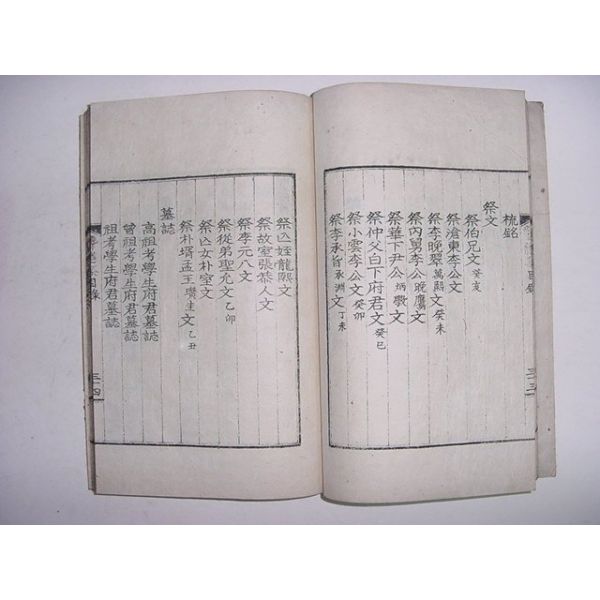 梳銘
祭文
祭伯兄文 癸亥
祭滄東李公文
祭李晩翠 萬熙 文 癸未
祭內舅李公 晩鷹 文
祭華下尹公 炳斆 文
祭仲父白下府君文 癸巳
祭小雲李公文 癸卯
祭李承旨 承淵 文 丁未
祭亡姪龍熙文
祭故室張恭人文
祭李元八文
祭從弟聖允文 乙卯
祭亡女朴室文
祭朴壻孟王 文 乙丑
墓誌
高祖考學生府君墓誌
曾祖考學生府君墓誌
祖考學生府君墓誌